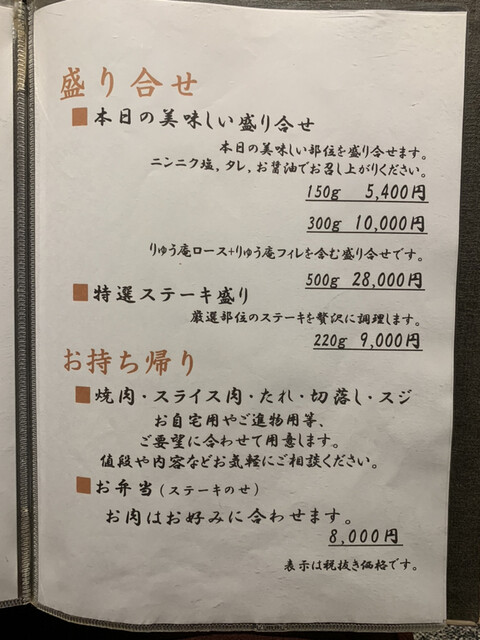 盛り合せ
■本日の美味しい盛り合せ
本日の美味しい部位を盛り合せます。
ニンニク塩,タレ,お醤油でお召し上がりください。
150g 5,400円
300g 10,000円
りゅう庵ロース+りゅう庵フィレを含む盛り合せです。
500g 28,000円
■特選ステーキ盛り
厳選部位のステーキを贅沢に調理します。
220g 9,000円
お持ち帰り
■焼肉・スライス肉・たれ・切落し・スジ
お自宅用やご進物用等、
ご要望に合わせて用意します。
値段や内容などお気軽にご相談ください。
■お弁当(ステーキのせ)
お肉はお好みに合わせます。
8,000円
表示は税抜き価格です。